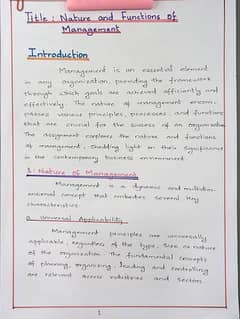 Title : Nature and Functions of
Management
Introduction
Management is an essential element
in any organization, providing the framework
through which goals are achieved efficiently and
effectively. The nature of management encom-
passes various principles, processes, and functions
that are crucial for the success of an organization
The assignment explores the nature and functions
of management, shedding light on their significance
in the contemporary business environment
1: Nature of Management
Management is a dynamic and multidim-
ensional concept that embodies several key
characteristics.
a. Universal Applicability
Management principles are universally
applicable, regardless of the type, size or nature
of the organization. The fundamental concepts
of planning, organizing, leading and controlling
are relevant across industries and sectors
1